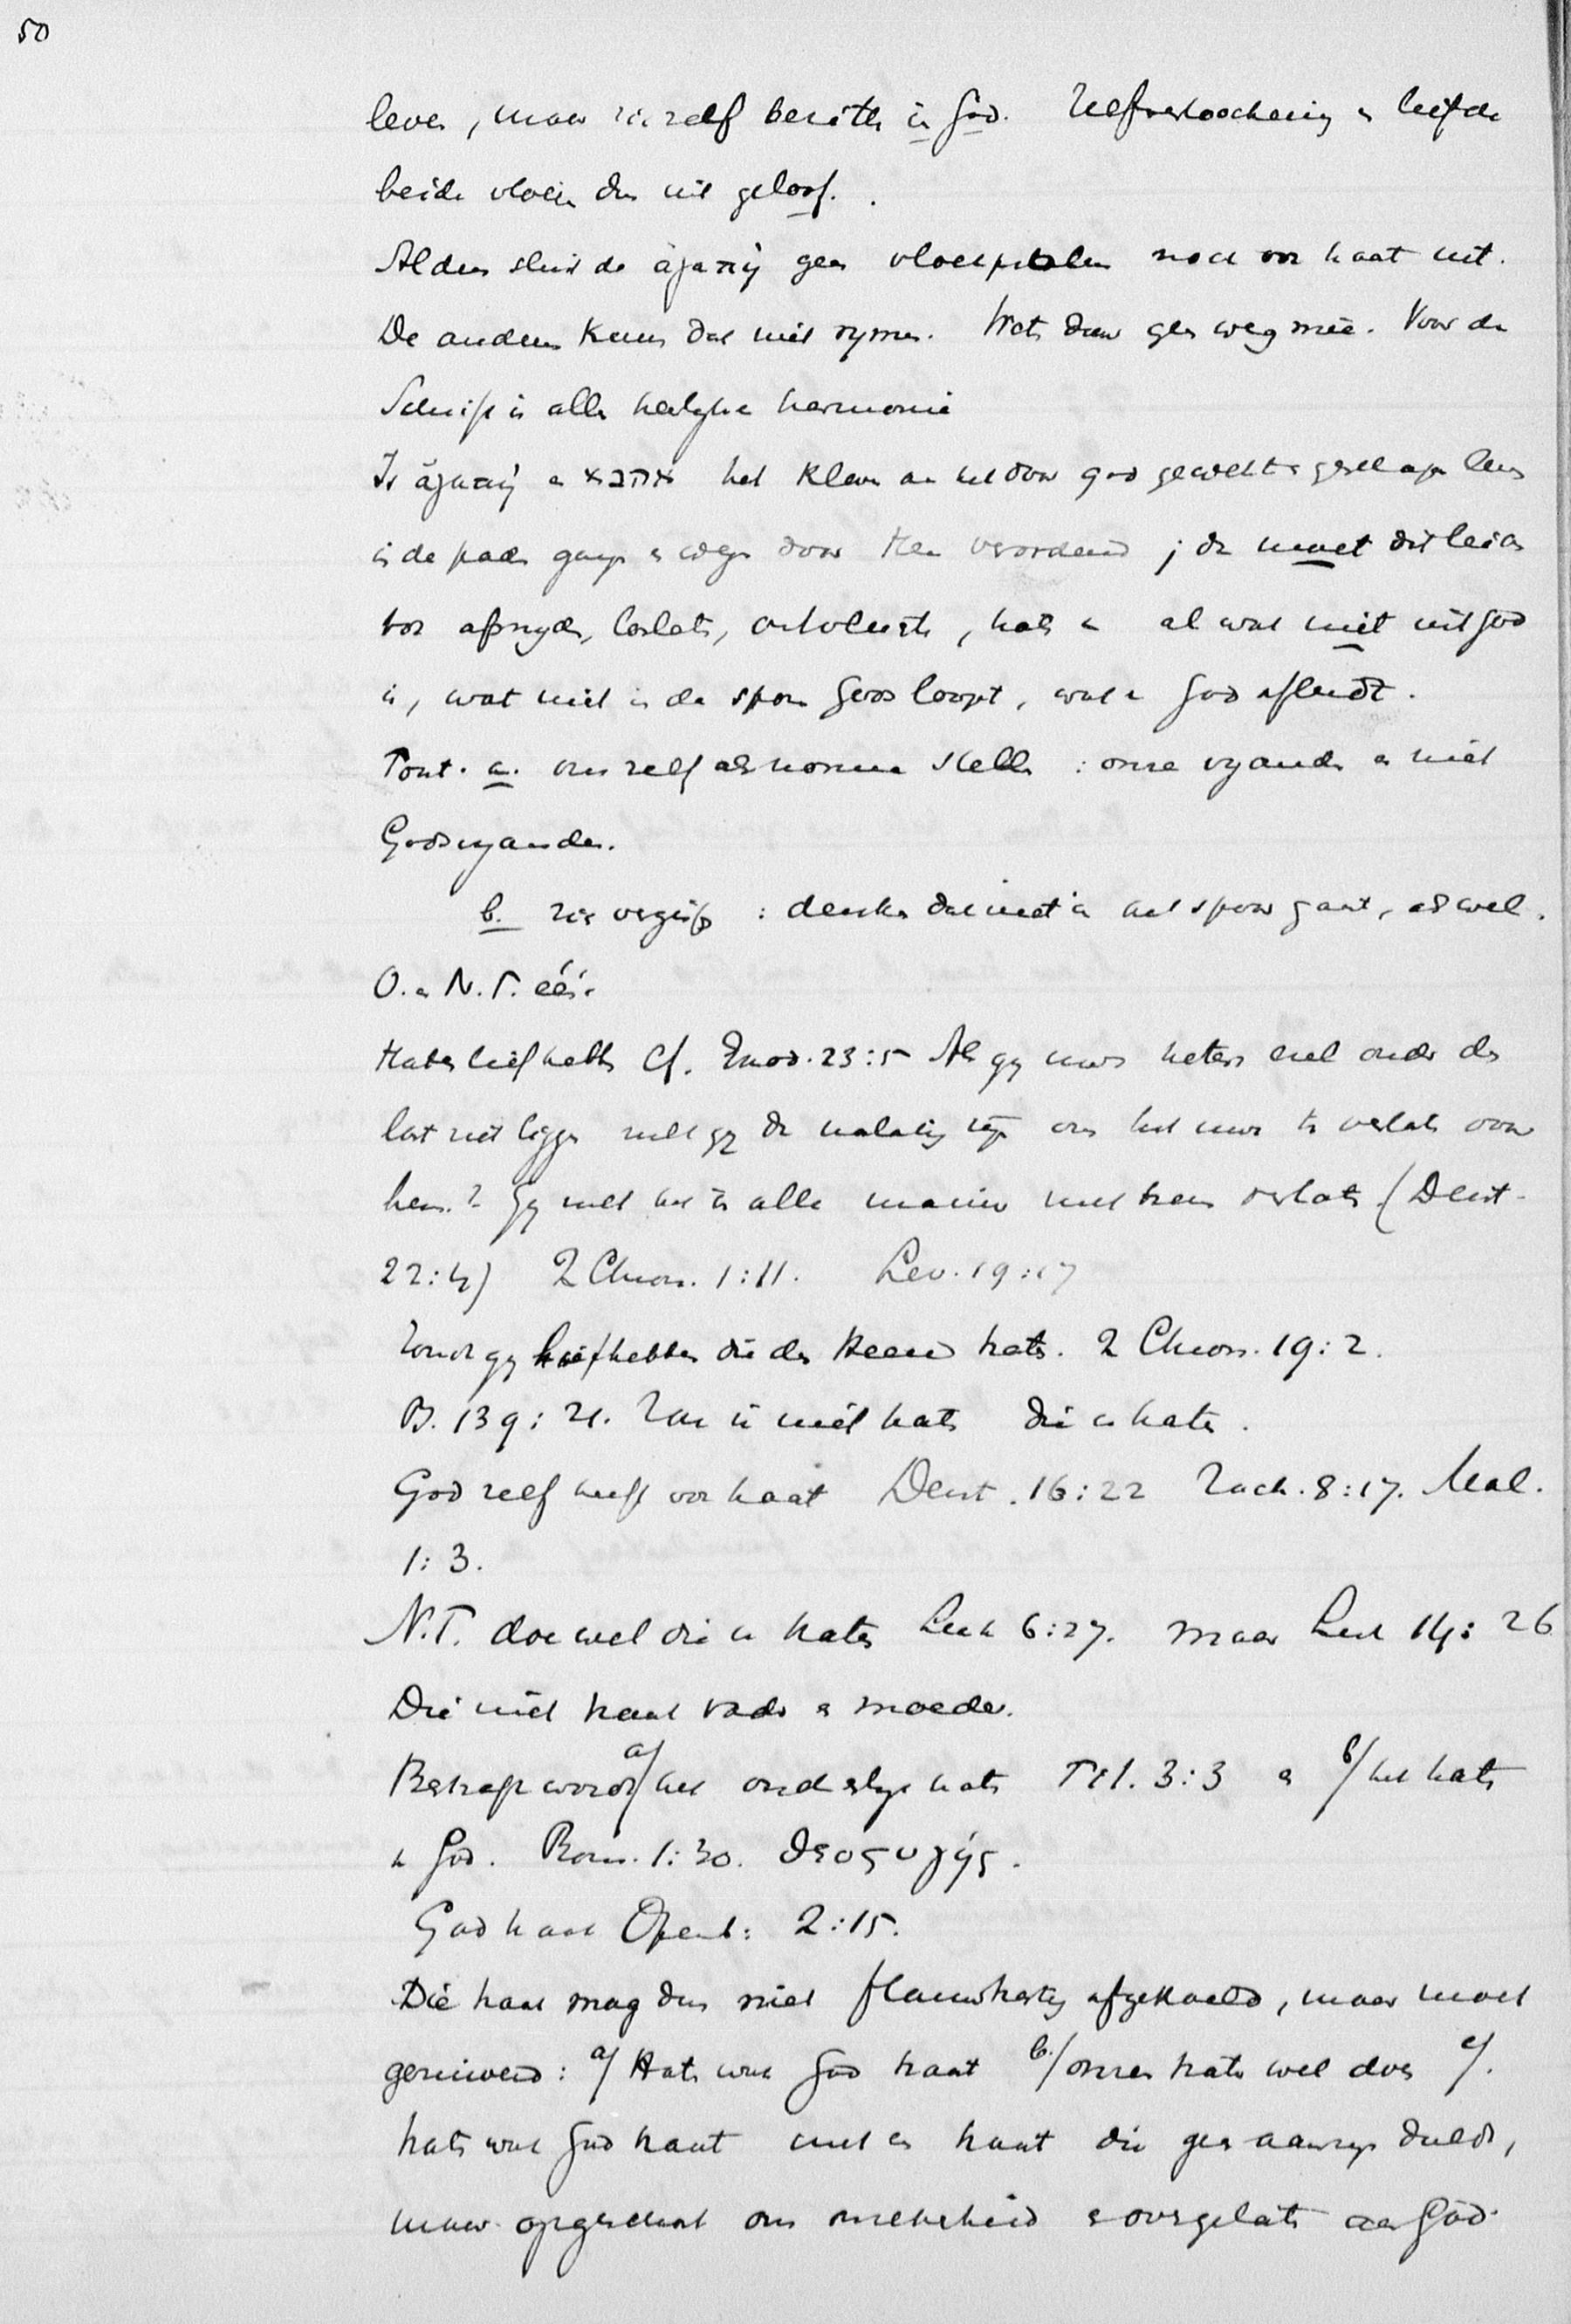 50
leven, maar zichzelf bezitten in God. Zelfverloochening en liefde
beide vloeien dus uit geloof.
Aldus sluit de ἀγαπή geen vloekpsalmen noch oor haat uit.
De anderen kunnen dat niet rymen. Weten daar geen weg mee. Voor de
Schrift is alles heerlyke harmonie
Is ἀγαπή en אהבה het kleven aan het door God gewilde en geschapen leven
in de paden gangen en wegen door Hem verordend ; dan moet dit leiden
tot afsnyden, loslaten, ontvluchten, haten van al wat niet uit God
is, wat niet in de sporen Gods loopt, wat van God afleidt.
Fout. a. ons zelf als norma stellen : onze vyanden en niet
Gods vyanden.
b. zich vergissen : denken dat niet in het spoor gaat, als wel.
O. en N.T. één.
Haters liefhebben Cf. Exod. 23:5 Als gy uws haters ezel onder den
last ziet liggen zult gy dan nalatig zyn om het uwe te verlaten voor
hem? Gy zult het in alle manier met hem verlaten (Deut.
22:4) 2 Chron. 1:11. Lev. 19:17
Zoudt gy liefhebben die den Heere haten. 2 Chron. 19:2.
Ps. 139:21. Zou ik niet haten die u haten.
God zelf heeft oor haat Deut. 16:22 Zach. 8:17. Mal.
1:3.
N.T. doe wel die u haten Luk 6:27. maar Luk 14:26
Die niet haat vader en moeder.
Bestraft wordt a/ het onderlinge haten Tit. 3:3 en b/ het haten
van God. Rom. 1:30. θεοςυγής.
God haat Openb: 2:15.
Die haat mag dus niet flauwhartig afgekoeld, maar moet
gereinigd: a/ Haten wat God haat b/ onze haters wel doen c/.
haten wat God haat met een haat die geen aanzien duldt,
maar opgeschort om onzekerheid en overgelaten aan God.